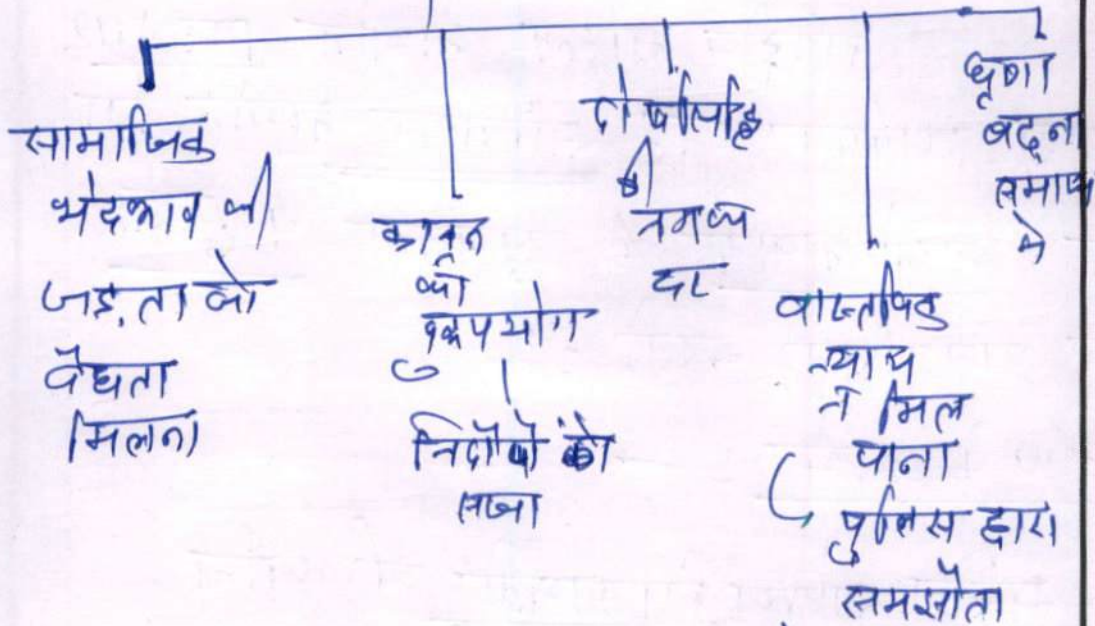 सामाजिक
भेदभाव की
जड़ता को
वैधता
मिलना
कानून
का
दुरुपयोग
निर्दोषों को
सजा
दोषसिद्धि
की
नगण्य
दर
वास्तविक
न्याय
न मिल
पाना
पुलिस द्वारा
समझौता
घृणा
बढ़ना
समाज
मे